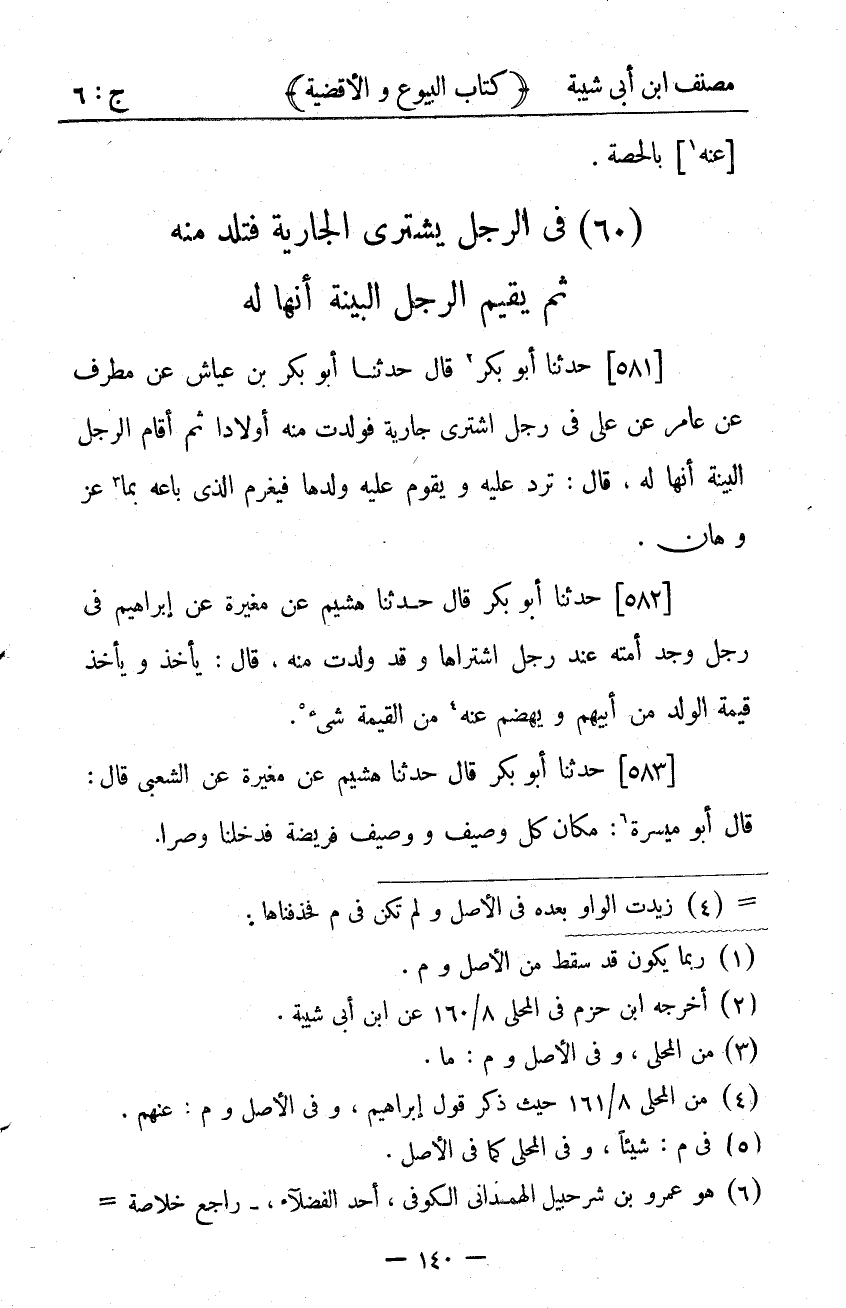 مصنف ابن أبى شيبة ﴿كتاب البيوع و الأقضية﴾ ج : ٦
[عنه١] بالحصة .
(٦٠) فى الرجل يشترى الجارية فتلد منه
ثم يقيم الرجل البينة أنها له
[٥٨١] حدثنا أبو بكر٢ قال حدثنا أبو بكر بن عياش عن مطرف
عن عامر عن على فى رجل اشترى جارية فولدت منه أولادا ثم أقام الرجل
البينة أنها له ، قال : ترد عليه و يقوم عليه ولدها فيغرم الذى باعه بما٣ عز
و هان .
[٥٨٢] حدثنا أبو بكر قال حدثنا هشيم عن مغيرة عن إبراهيم فى
رجل وجد أمته عند رجل اشتراها و قد ولدت منه ، قال : يأخذ و يأخذ
قيمة الولد من أبيهم و يهضم عنه٤ من القيمة شىء٥.
[٥٨٣] حدثنا أبو بكر قال حدثنا هشيم عن مغيرة عن الشعبى قال :
قال أبو ميسرة٦ : مكان كل وصيف و وصيف فريضة فدخلنا وصرا.
= (٤) زيدت الواو بعده فى الأصل و لم تكن فى م فحذفناها .
(١) ربما يكون قد سقط من الأصل و م .
(٢) أخرجه ابن حزم فى المحلى ١٦٠/٨ عن ابن أبى شيبة .
(٣) من المحلى ، و فى الأصل و م : ما .
(٤) من المحلى ١٦١/٨ حيث ذكر قول إبراهيم ، و فى الأصل و م : عنهم .
(٥) فى م : شيئاً ، و فى المحلى كما فى الأصل .
(٦) هو عمرو بن شرحبيل الهمدانى الكوفى ، أحد الفضلآء ، ـ راجع خلاصة =
— ١٤٠ —